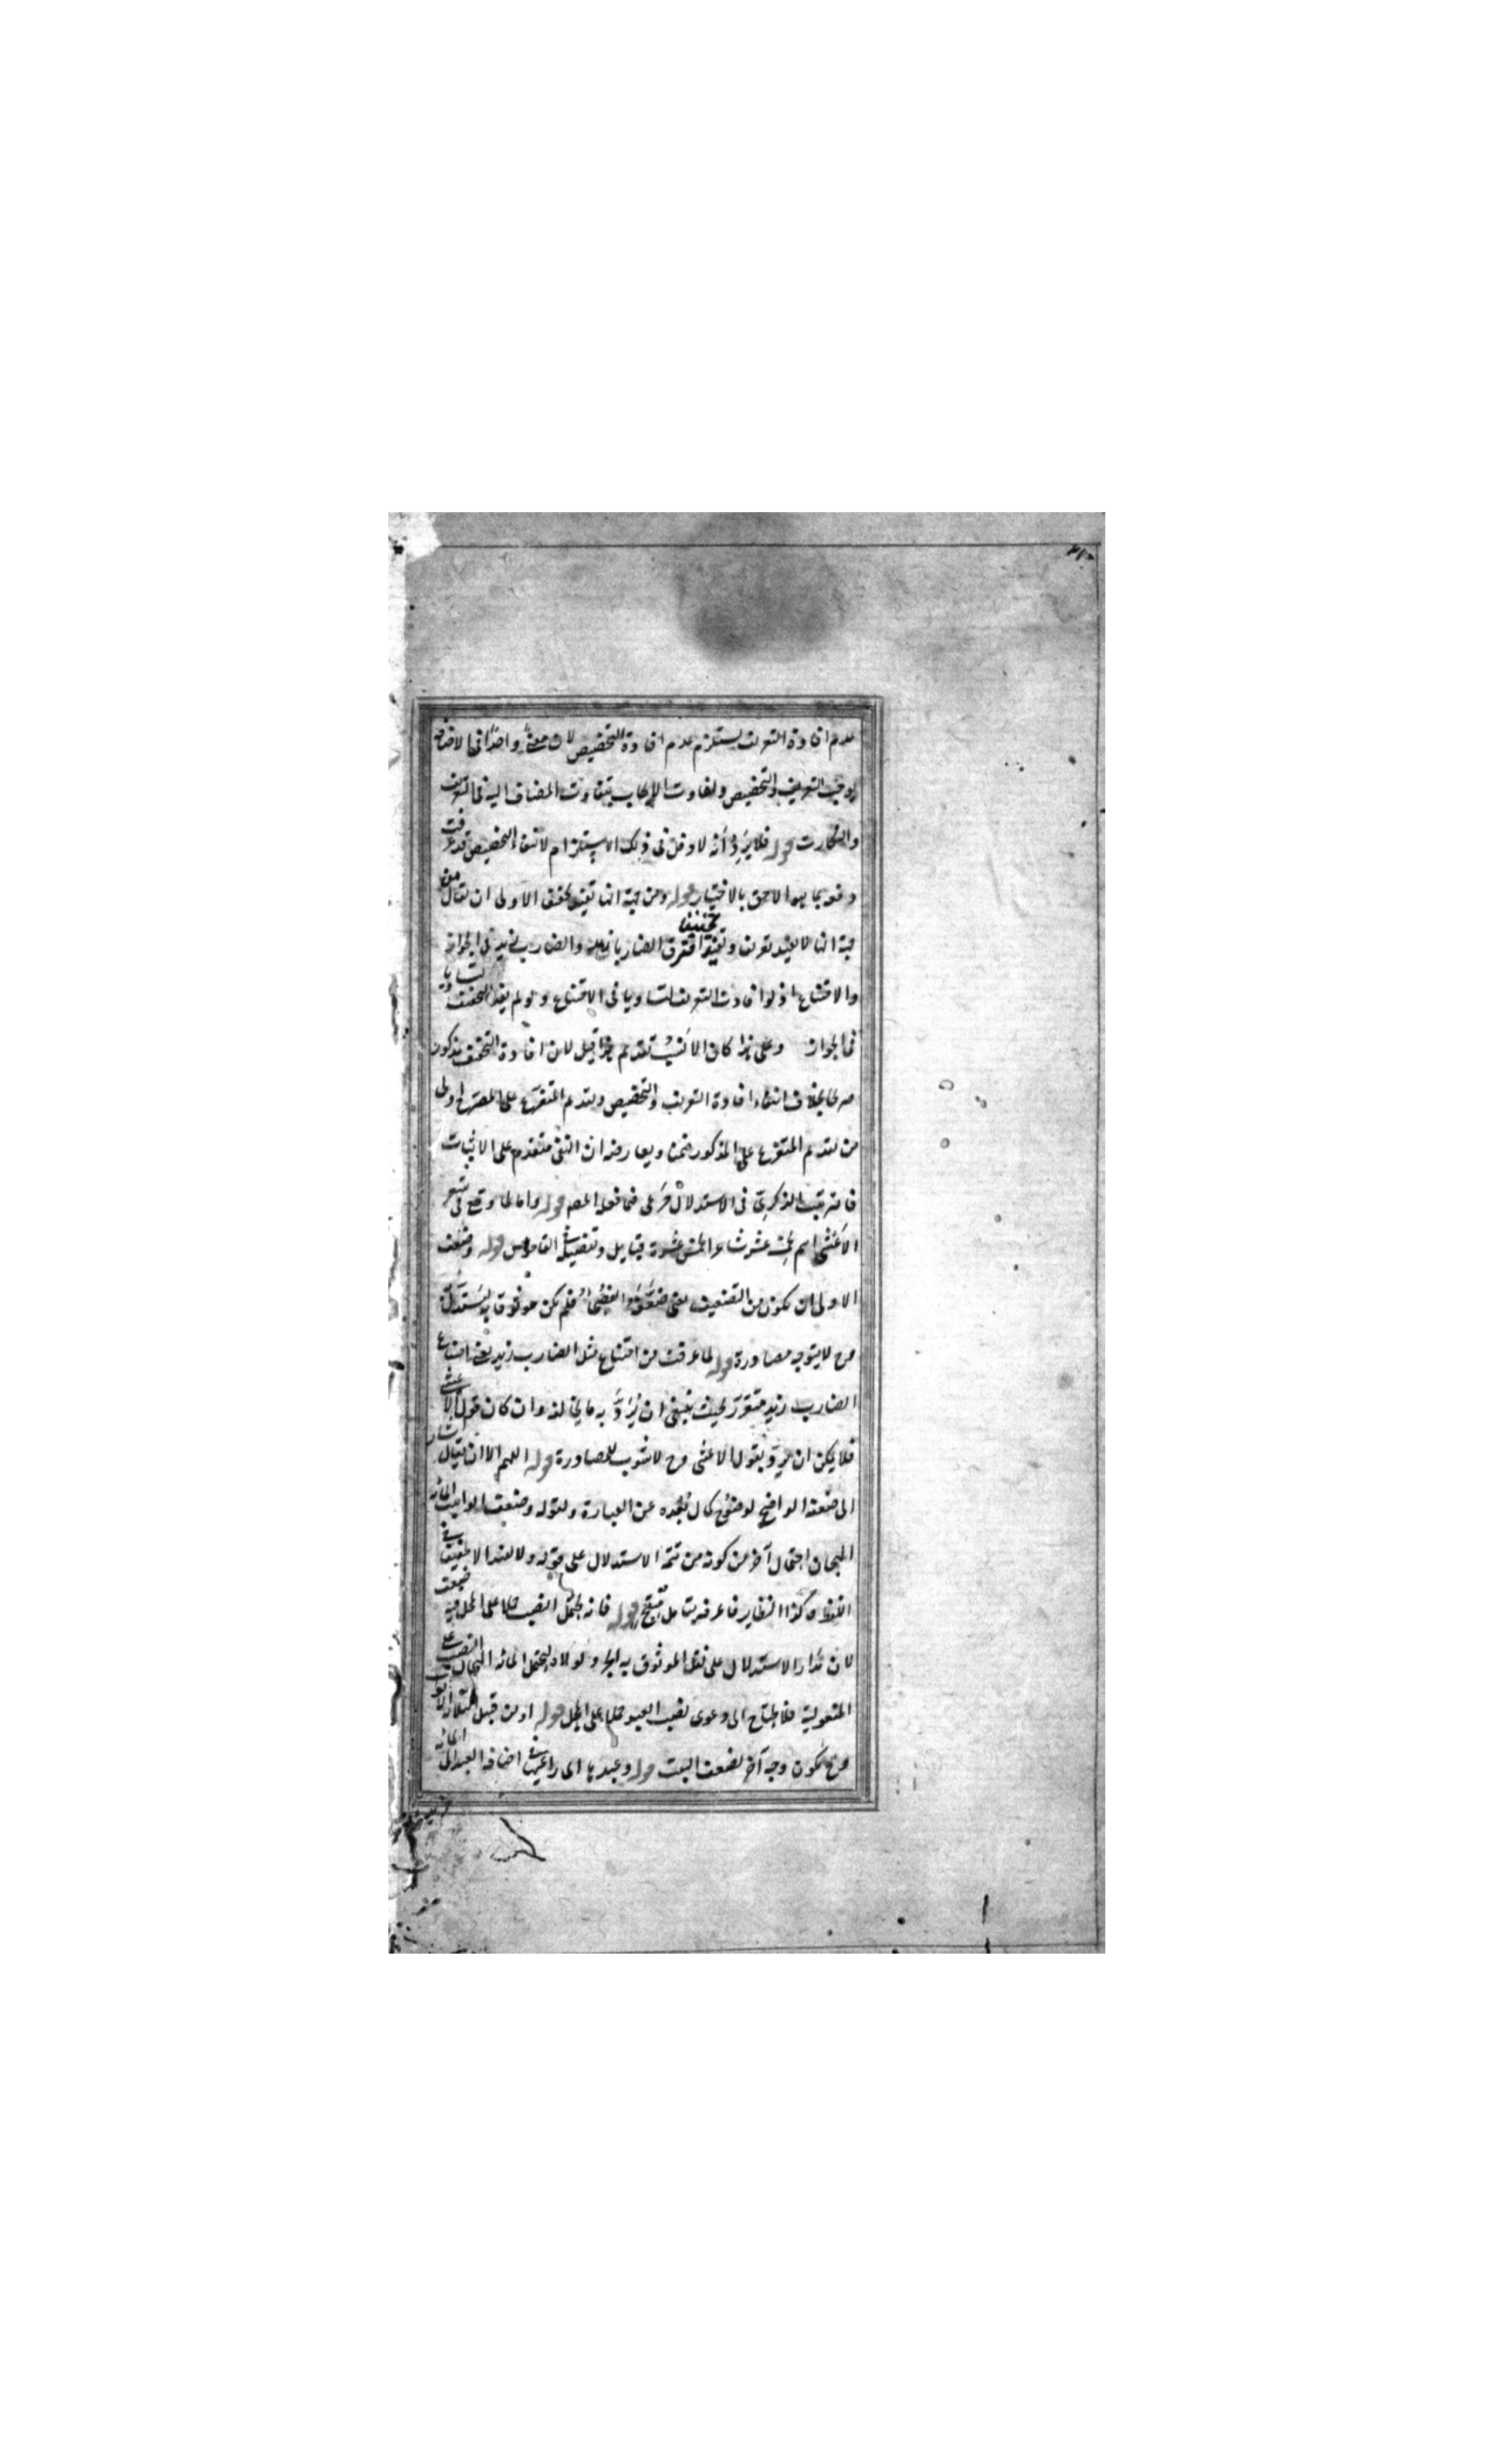 عدم افادة التعريف يستلزم عدم افادة التخصيص لان معنى واحدا فى الاضافة
يوجب التعريف والتخصيص وتفاوت الايجاب بتفاوت المضاف اليه فى التعريف
والنكارت قوله فلا يرد أنه لا دخل فى ذلك الاستلزام لانتفاء التخصيص قد عرفت
دفعه بما هو الاحق بالاختيار قوله ومن جهة انها تفيد تخفيفا الاولى ان يقال من
جهة انها لا تفيد تعريفا وتفيد تخفيفا افترق الضاربا زيد والضارب زيد فى الجواز
والامتناع اذ لو افادت التعريف لتساويا فى الامتناع ولو لم يفد التخفيف لتساويا
فى الجواز وعلى هذا كان الانسب تقديم قيل لان افادة التخفيف مذكور
صريحا بخلاف انتفاء افادة التعريف والتخصيص وتقديم المتفرع على المصرح اولى
من تقديم المتفرع على المذكور ضمنا ويعارضه ان النفى متقدم على الاثبات
فالترتيب الذكرى فى الاستدلال مرعى فيما فعله المص قوله واما لما وقع فى شعر
الاعشى اسم لخمسة عشر شاعرا لخمس عشرة قبايل وتفصيله فى القاموس قوله وضعف
الاولى ان يكون من التضعيف يعنى ضعفه الفصحاء فلم يكن موثوقا به ليستدل
وح لا يتوجه مصادرة قوله لما عرفت من امتناع مثل الضارب زيد يعنى امتناع
الضارب زيد متقرر بحيث ينبغى ان يرد به ما يخالفه وان كان قول الاعشى
فلا يمكن ان يرد بقول الاعشى وح لا شوب للمصادرة قوله اللهم الا ان يقال اشار
الى ضعفه الواضح لوضوح كمال بعده عن العبارة ولقوله وضعف الواهب المائة
الهجان احتمال آخر من كونه من تتمة الاستدلال على قوله ولا يفيد الا تخفيفا فى
اللفظ وكذا النظاير فاعرفه بتامل قوله فانه يحتمل النصب حملا على المحل فيه ضعف
لان مدار الاستدلال على نقل الموثوق به الجر ولولاه ليحتمل المائة الهجان النصب على
المفعولية فلا يحتاج الى دعوى نصب العبد حملا على المحل قوله او من قبيل الثلاثة الاثواب
وح يكون وجه آخر لضعف البيت قوله وعبدها اى راعيها فى اضافة العبد الى المائة